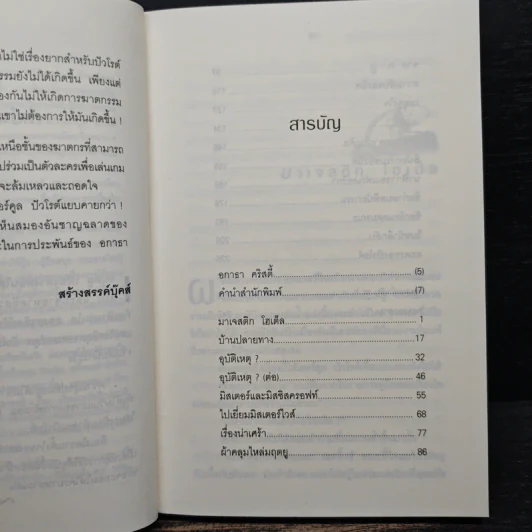 ไม่ใช่เรื่องยากสำหรับปัวโรต์
รรมยังไม่ได้เกิดขึ้น เพียงแต่
องกันไม่ให้เกิดการฆาตกรรม
เขาไม่ต้องการให้มันเกิดขึ้น !
เหนือชั้นของฆาตกรที่สามารถ
ปร่วมเป็นตัวละครเพื่อเล่นเกม
จะล้มเหลวและถอดใจ
อร์คูล ปัวโรต์แยบคายกว่า !
ห็นสมองอันชาญฉลาดของ
ะในการประพันธ์ของ อกาธา
สร้างสรรค์บุ๊คส์
สารบัญ
อกาธา คริสตี้ (5)
คำนำสำนักพิมพ์ (7)
มาเจสติก โฮเต็ล 1
บ้านปลายทาง 17
อุบัติเหตุ ? 32
อุบัติเหตุ ? (ต่อ) 46
มิสเตอร์และมิสซิสครอฟท์ 55
ไปเยี่ยมมิสเตอร์ไวส์ 68
เรื่องน่าเศร้า 77
ผ้าคลุมไหล่มฤตยู 86